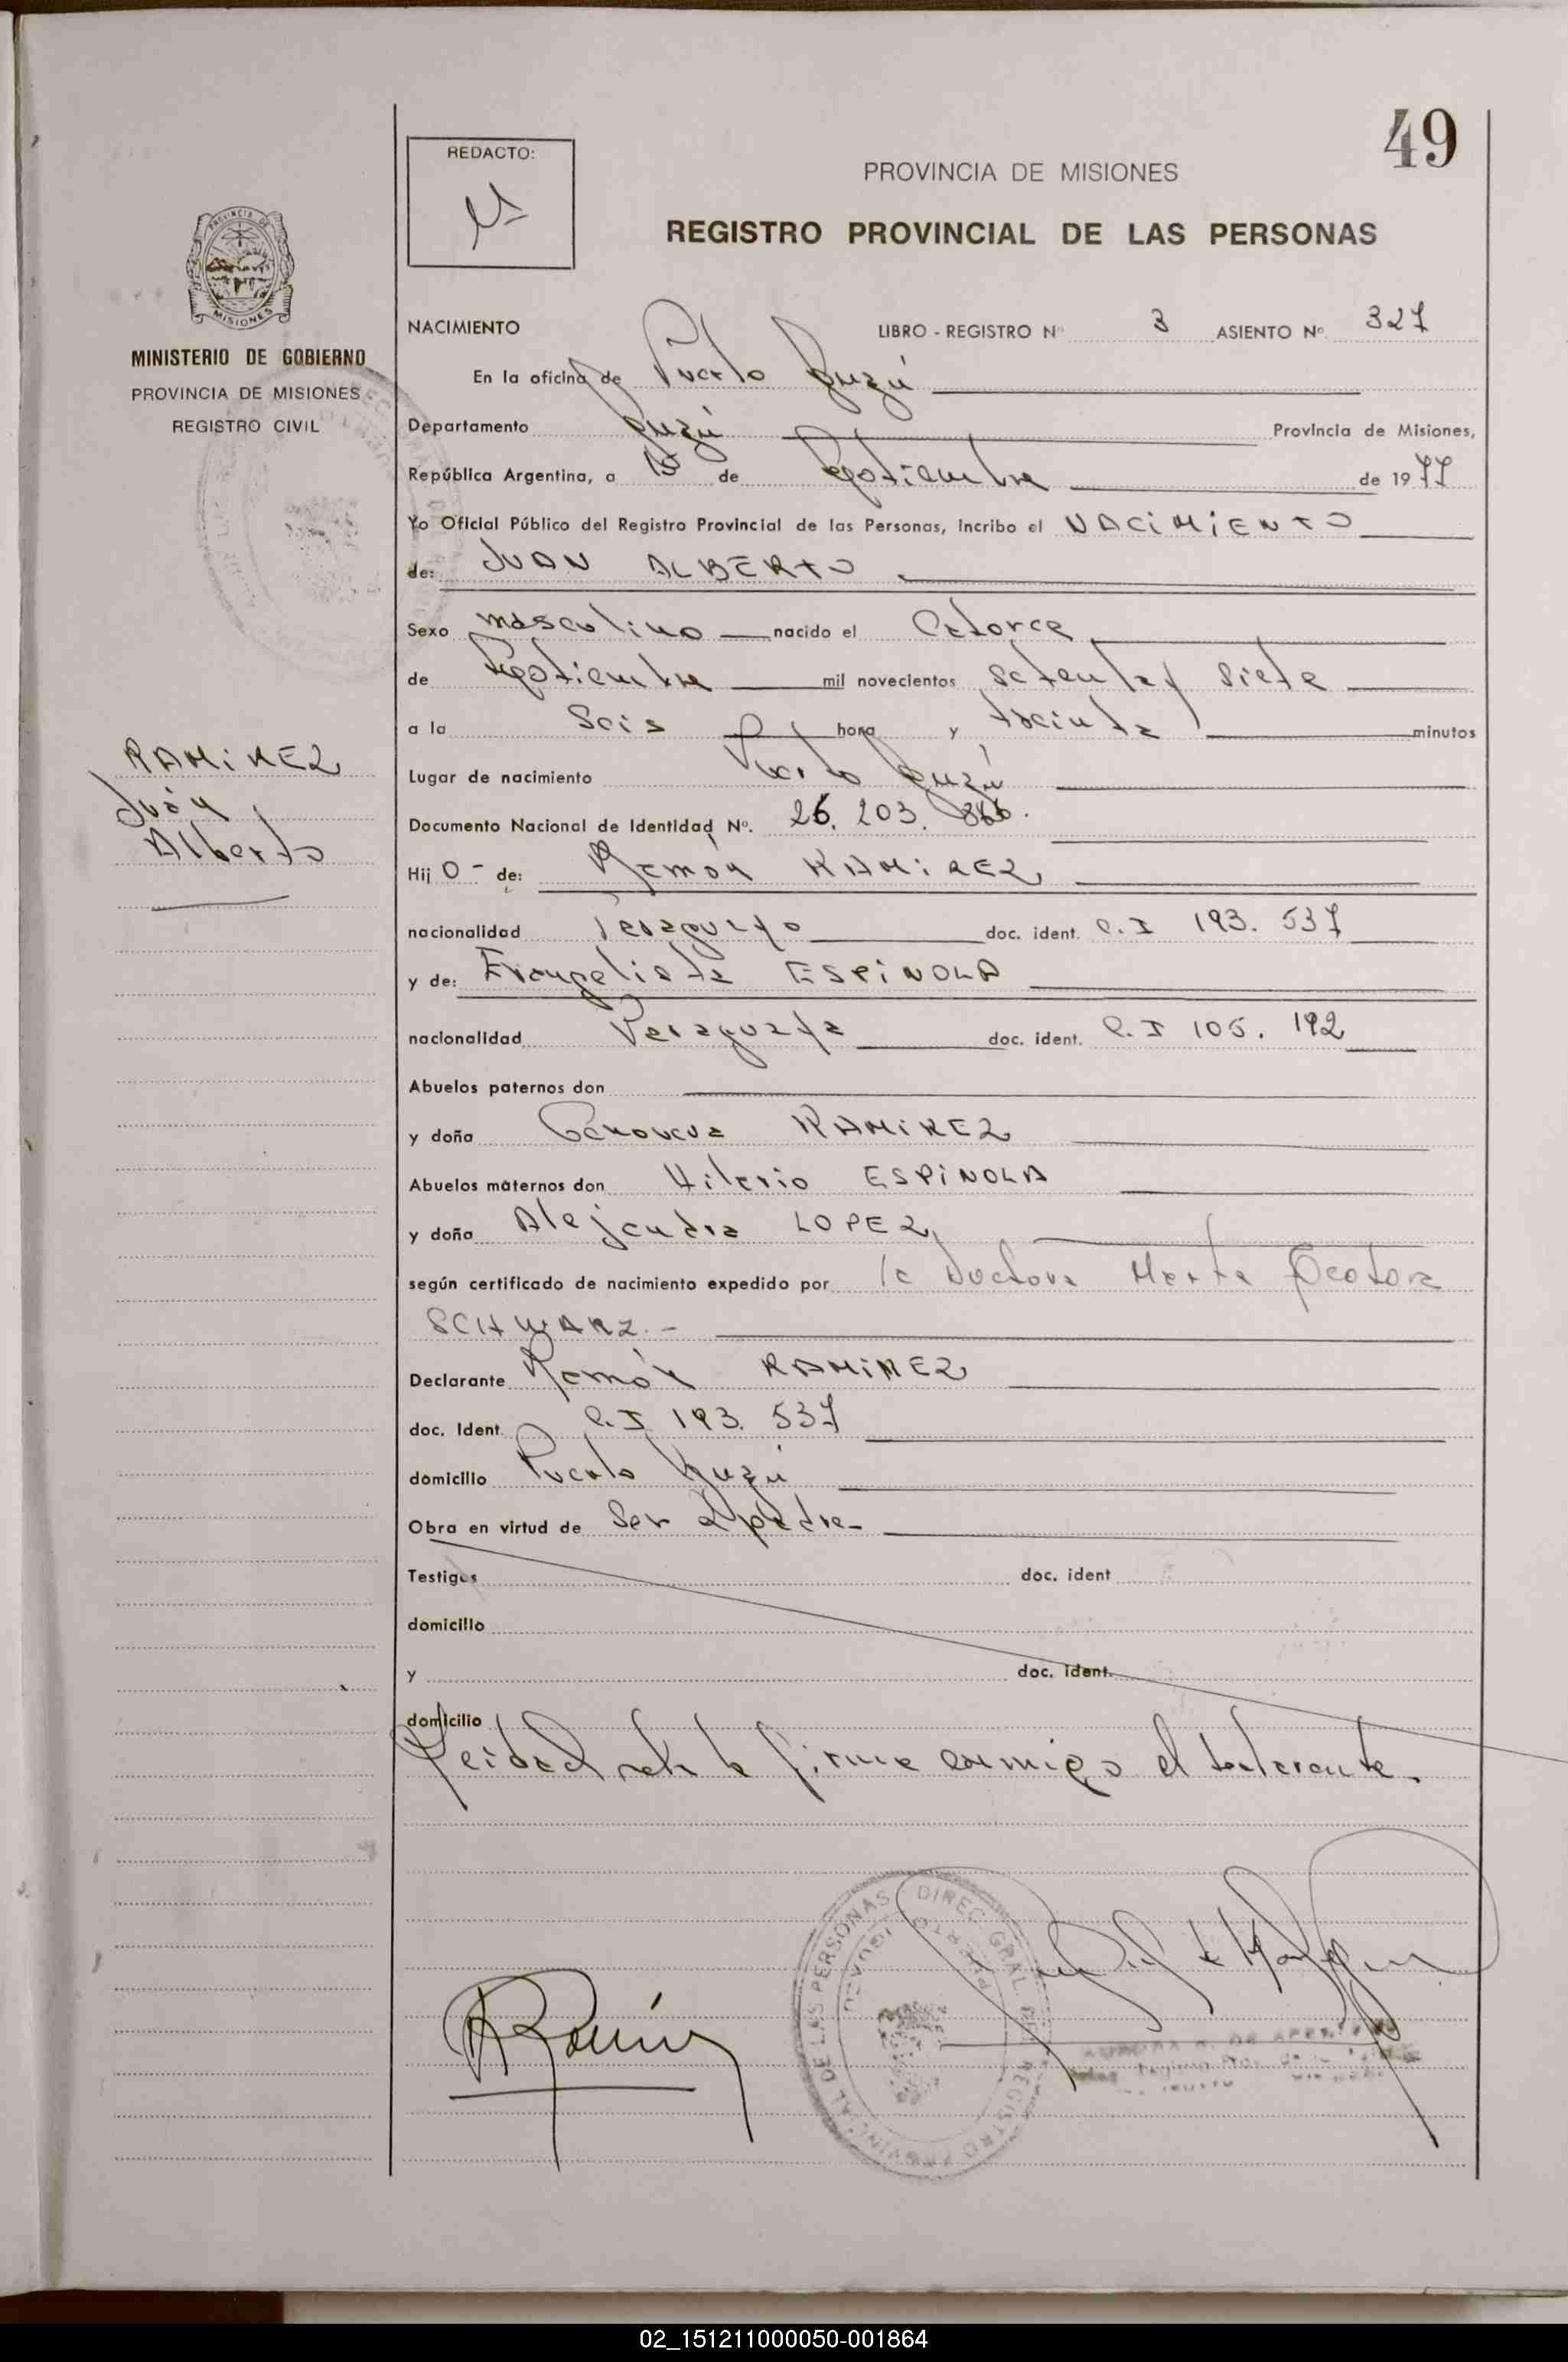 49
REDACTO:
PROVINCIA DE MISIONES
REGISTRO PROVINCIAL DE LAS PERSONAS
PROVINCIA DE
MISIONES
MINISTERIO DE GOBIERNO
PROVINCIA DE MISIONES
REGISTRO CIVIL
NACIMIENTO LIBRO - REGISTRO Nº 3 ASIENTO Nº 327
En la oficina de Puerto Iguazú
Departamento Iguazú Provincia de Misiones,
República Argentina, a 15 de Septiembre de 1977
Yo Oficial Público del Registro Provincial de las Personas, incribo el NACIMIENTO
de: JUAN ALBERTO
Sexo masculino nacido el Catorce
de Septiembre mil novecientos setenta y siete
a la Seis hora y treinta minutos
RAMIREZ
Juán
Alberto
Lugar de nacimiento Puerto Iguazú
Documento Nacional de Identidad Nº. 26.203.
Hij o - de: Ramón RAMIREZ
nacionalidad Paraguayo doc. ident. C.I 193.537
y de: Evangelista ESPINOLA
nacionalidad Paraguaya doc. ident. C.I 105.192
Abuelos paternos don
y doña Genoveva RAMIREZ
Abuelos maternos don Hilario ESPINOLA
y doña Alejandra LOPEZ
según certificado de nacimiento expedido por la Doctora Marta Teodora
SCHWARZ.-
Declarante Ramón RAMIREZ
doc. Ident. C.I 193.537
domicilio Puerto Iguazú
Obra en virtud de Ser el padre-
Testigos doc. ident
domicilio
y doc. ident.
domicilio
Leida el acta la firma conmigo el declarante.
DIREC. GRAL. DEL REGISTRO PROVINCIAL DE LAS PERSONAS
PUERTO IGUAZU
02_151211000050-001864